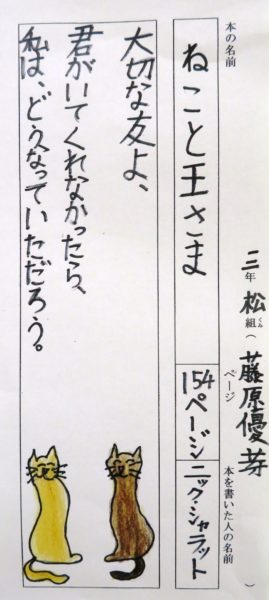 三年 松組（くみ） 藤原優芽）
本の名前
ねこと王さま
ページ
154ページ
本を書いた人の名前
ニック・シャラット
大切な友よ、
君がいてくれなかったら、
私は、どうなっていただろう。